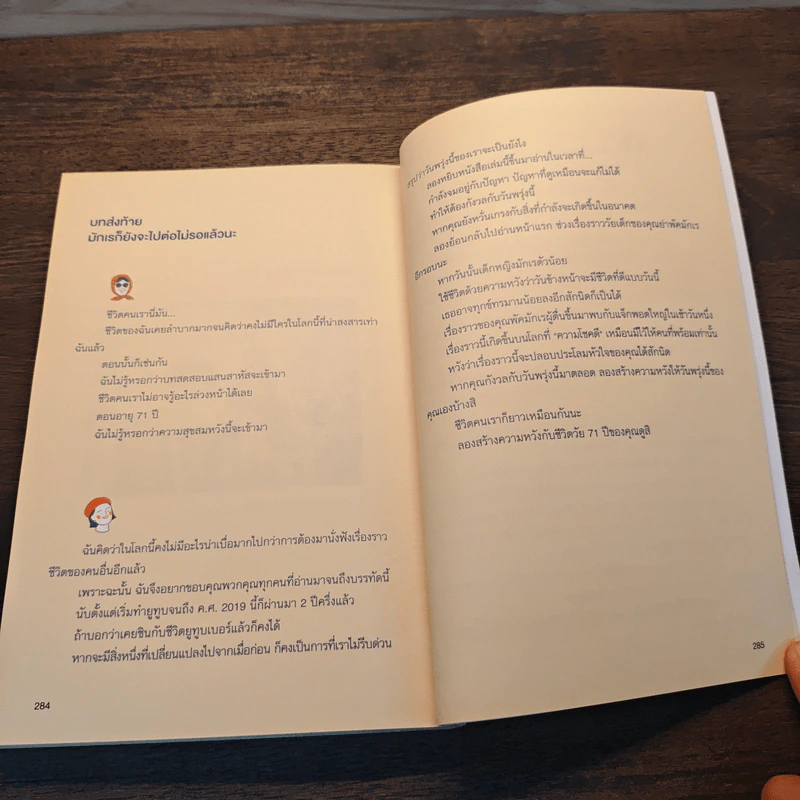 บทส่งท้าย
มักเรก็ยังจะไปต่อไม่รอแล้วนะ
ชีวิตคนเรานี่มัน...
ชีวิตของฉันเคยลำบากมากจนคิดว่าคงไม่มีใครในโลกนี้ที่น่าสงสารเท่า
ฉันแล้ว
ตอนนั้นก็เช่นกัน
ฉันไม่รู้หรอกว่าบททดสอบแสนสาหัสจะเข้ามา
ชีวิตคนเราไม่อาจรู้อะไรล่วงหน้าได้เลย
ตอนอายุ 71 ปี
ฉันไม่รู้หรอกว่าความสุขสมหวังนี้จะเข้ามา
ฉันคิดว่าในโลกนี้คงไม่มีอะไรน่าเบื่อมากไปกว่าการต้องมานั่งฟังเรื่องราว
ชีวิตของคนอื่นอีกแล้ว
เพราะฉะนั้น ฉันจึงอยากขอบคุณพวกคุณทุกคนที่อ่านมาจนถึงบรรทัดนี้
นับตั้งแต่เริ่มทำยูทูบจนถึง ค.ศ. 2019 นี้ก็ผ่านมา 2 ปีครึ่งแล้ว
ถ้าบอกว่าเคยชินกับชีวิตยูทูบเบอร์แล้วก็คงได้
หากจะมีสิ่งหนึ่งที่เปลี่ยนแปลงไปจากเมื่อก่อน ก็คงเป็นการที่เราไม่รีบด่วน
284
สรุปว่าวันพรุ่งนี้ของเราจะเป็นยังไง
ลองหยิบหนังสือเล่มนี้ขึ้นมาอ่านในเวลาที่...
กำลังจมอยู่กับปัญหา ปัญหาที่ดูเหมือนจะแก้ไม่ได้
ทำให้ต้องกังวลกับวันพรุ่งนี้
หากคุณยังหวั่นเกรงกับสิ่งที่กำลังจะเกิดขึ้นในอนาคต
ลองย้อนกลับไปอ่านหน้าแรก ช่วงเรื่องราววัยเด็กของคุณย่าพัคมักเร
อีกรอบนะ
หากวันนั้นเด็กหญิงมักเรตัวน้อย
ใช้ชีวิตด้วยความหวังว่าวันข้างหน้าจะมีชีวิตที่ดีแบบวันนี้
เธออาจทุกข์ทรมานน้อยลงอีกสักนิดก็เป็นได้
เรื่องราวของคุณพัคมักเรผู้ตื่นขึ้นมาพบกับแจ็กพอตใหญ่ในเช้าวันหนึ่ง
เรื่องราวนี้เกิดขึ้นบนโลกที่ "ความโชคดี" เหมือนมีไว้ให้คนที่พร้อมเท่านั้น
หวังว่าเรื่องราวนี้จะปลอบประโลมหัวใจของคุณได้สักนิด
หากคุณกังวลกับวันพรุ่งนี้มาตลอด ลองสร้างความหวังให้วันพรุ่งนี้ของ
คุณเองบ้างสิ
ชีวิตคนเราก็ยาวเหมือนกันนะ
ลองสร้างความหวังกับชีวิตวัย 71 ปีของคุณดูสิ
285